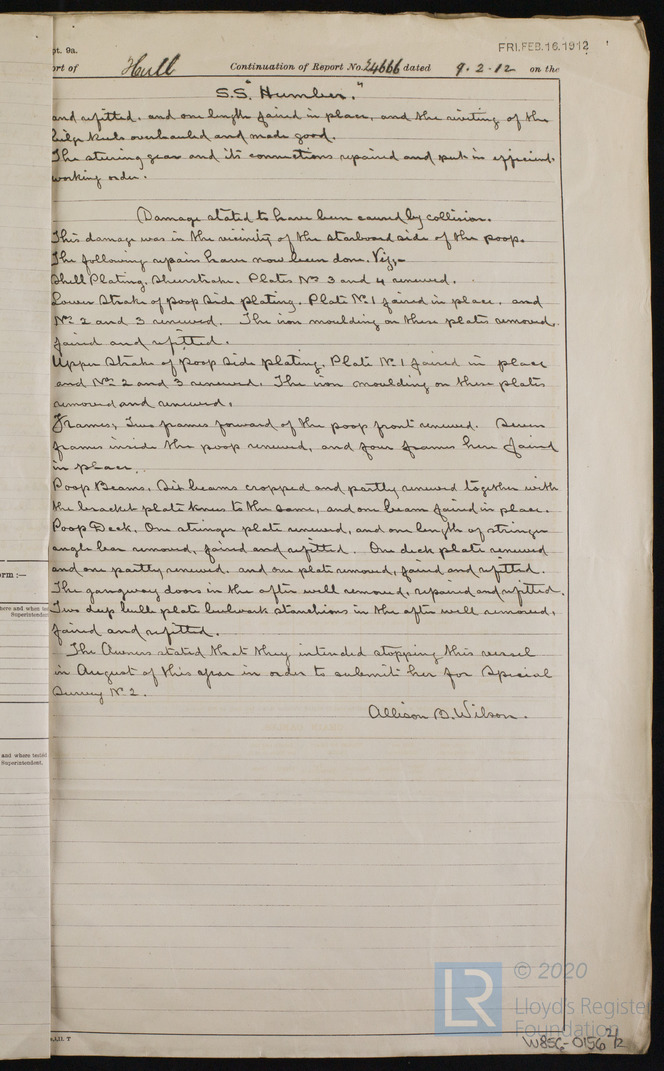 pt. 9a.
FRI. FEB. 16. 1912
ort of Hull Continuation of Report No. 24666 dated 9.2.12 on the
S.S. "Humber."
and refitted, and one length faired in place, and the riveting of the
bilge keels overhauled and made good.
The steering gear and its connections repaired and put in efficient
working order.
Damage stated to have been caused by collision.
This damage was in the vicinity of the starboard side of the poop.
The following repairs have now been done. Viz,-
Shell Plating. Sheerstrake. Plates Nos 3 and 4 renewed.
Lower Strake of poop side plating. Plate No. 1 faired in place, and
Nos 2 and 3 renewed. The iron moulding on these plates removed,
faired and refitted.
Upper Strake of poop side plating. Plate No. 1 faired in place
and Nos 2 and 3 renewed. The iron moulding on these plates
removed and renewed.
Frames, Two frames forward of the poop front renewed. Seven
frames inside the poop renewed, and four frames here faired
in place.
Poop Beams. Six beams cropped and partly renewed together with
the bracket plate knees to the same, and one beam faired in place.
Poop Deck. One stringer plate renewed, and one length of stringer
angle bar removed, faired and refitted. One deck plate renewed
and one partly renewed, and one plate removed, faired and refitted.
The gangway doors in the after well removed, repaired and refitted.
Two deep bulb plate bulwark stanchions in the after well removed,
faired and refitted.
The Owners stated that they intended stopping this vessel
in August of this year in order to submit her for Special
Survey No. 2.
Allison D. Wilson.
orm :—
here and when
Superintendent
and where tested
Superintendent.
LR © 2020
Lloyd's Register
Foundation
W856-0156 2/2